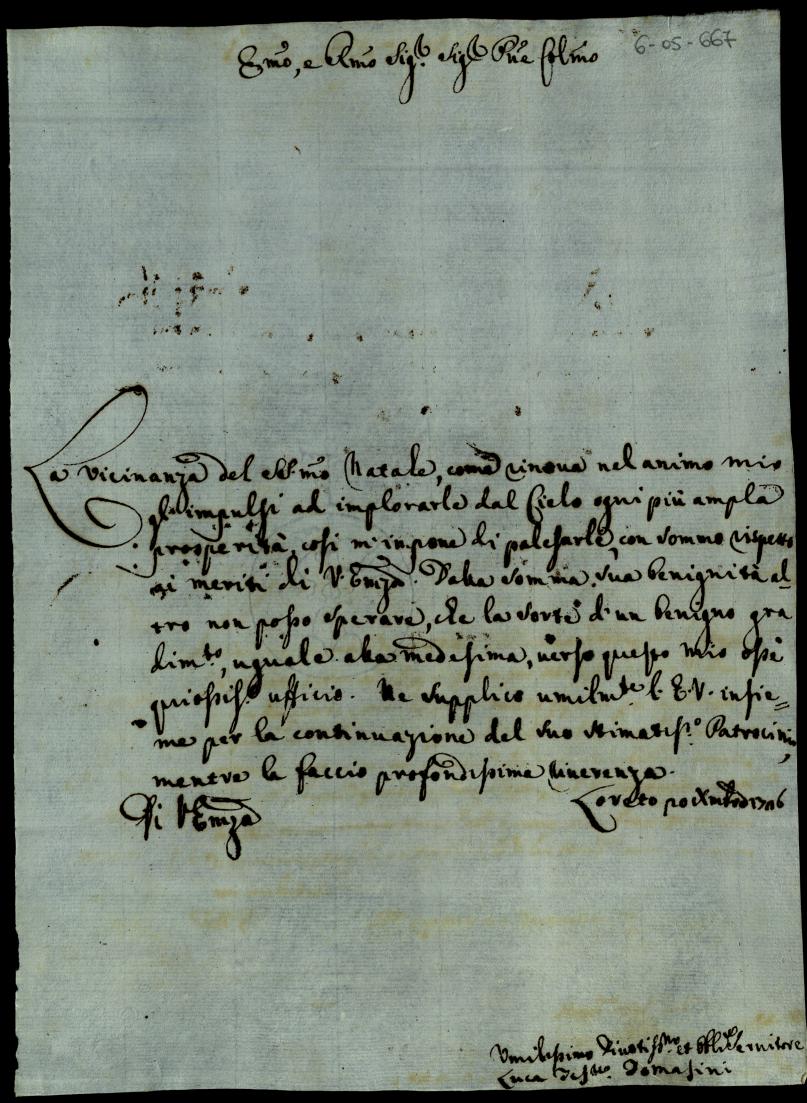 6-05-667
Emo, e Rmo Sigr. Sigr Pne Colmo
La vicinanza del SSmo Natale, come rinova nel animo mio
gl'impulsi ad implorarle dal Cielo ogni più ampla
prosperità, così m'impone di palesarle, con sommo rispetto
ai meriti di V. Emza. Dalla somma sua benignità al-
tro non posso sperare, che la sorte d'un benigno gra
dimto, uguale alla medesima, verso questo mio osse
quiosiso ufficio. Ne supplico umilmte l'E.V. insie=
me per la continuazione del suo stimatiso Patrocinio,
mentre le faccio profondissima riverenza.
Di V. Emza
Loreto po Xmbre 1706
Umilissimo Divotissmo et Obblimo Servitore
Luca Tomasini